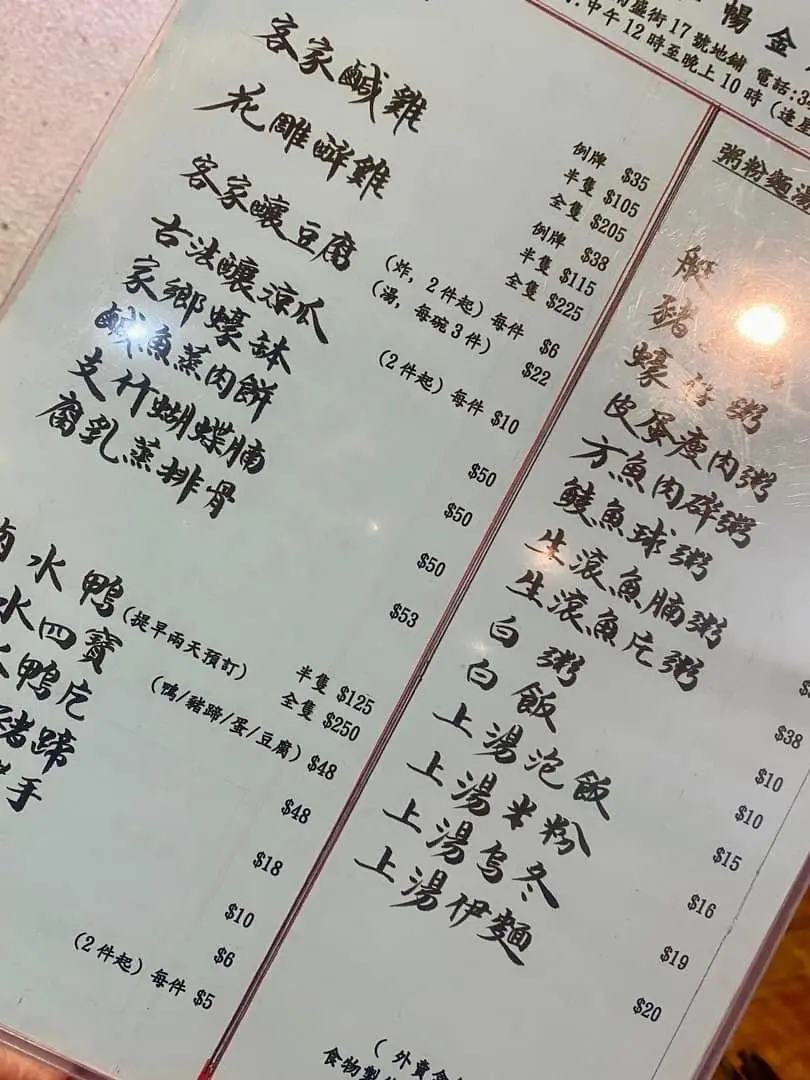 客家鹹雞
例牌 $35
半隻 $105
全隻 $205
花雕醉雞
例牌 $38
半隻 $115
全隻 $225
客家釀豆腐
(炸, 2件起) 每件 $6
(湯, 每碗3件) $22
古法釀涼瓜
(2件起) 每件 $10
家鄉蠔缽
$50
鹹魚蒸肉餅
$50
支竹蝴蝶腩
$50
腐乳蒸排骨
$53
水鴨 (提早兩天預訂)
半隻 $125
全隻 $250
水四寶 (鴨/豬蹄/蛋/豆腐) $48
鴨
$48
蹄
$18
手
$10
$6
(2件起) 每件 $5
街17號地鋪 電話:
中午12時至晚上10時
暢 金
粥粉麵
艇
豬
蠔仔粥
皮蛋瘦肉粥
方魚肉碎粥
鯪魚球粥
生滾魚腩粥
生滾魚片粥
$38
白粥
$10
白飯
$10
上湯泡飯
$15
上湯米粉
$16
上湯烏冬
$19
上湯伊麵
$20
( 外賣
食物製